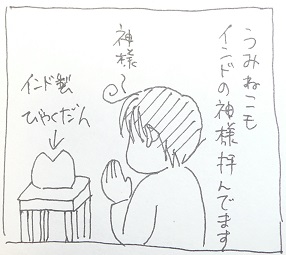 うみねこも
インドの神様拝んでます
神様
インド製
びゃくだん